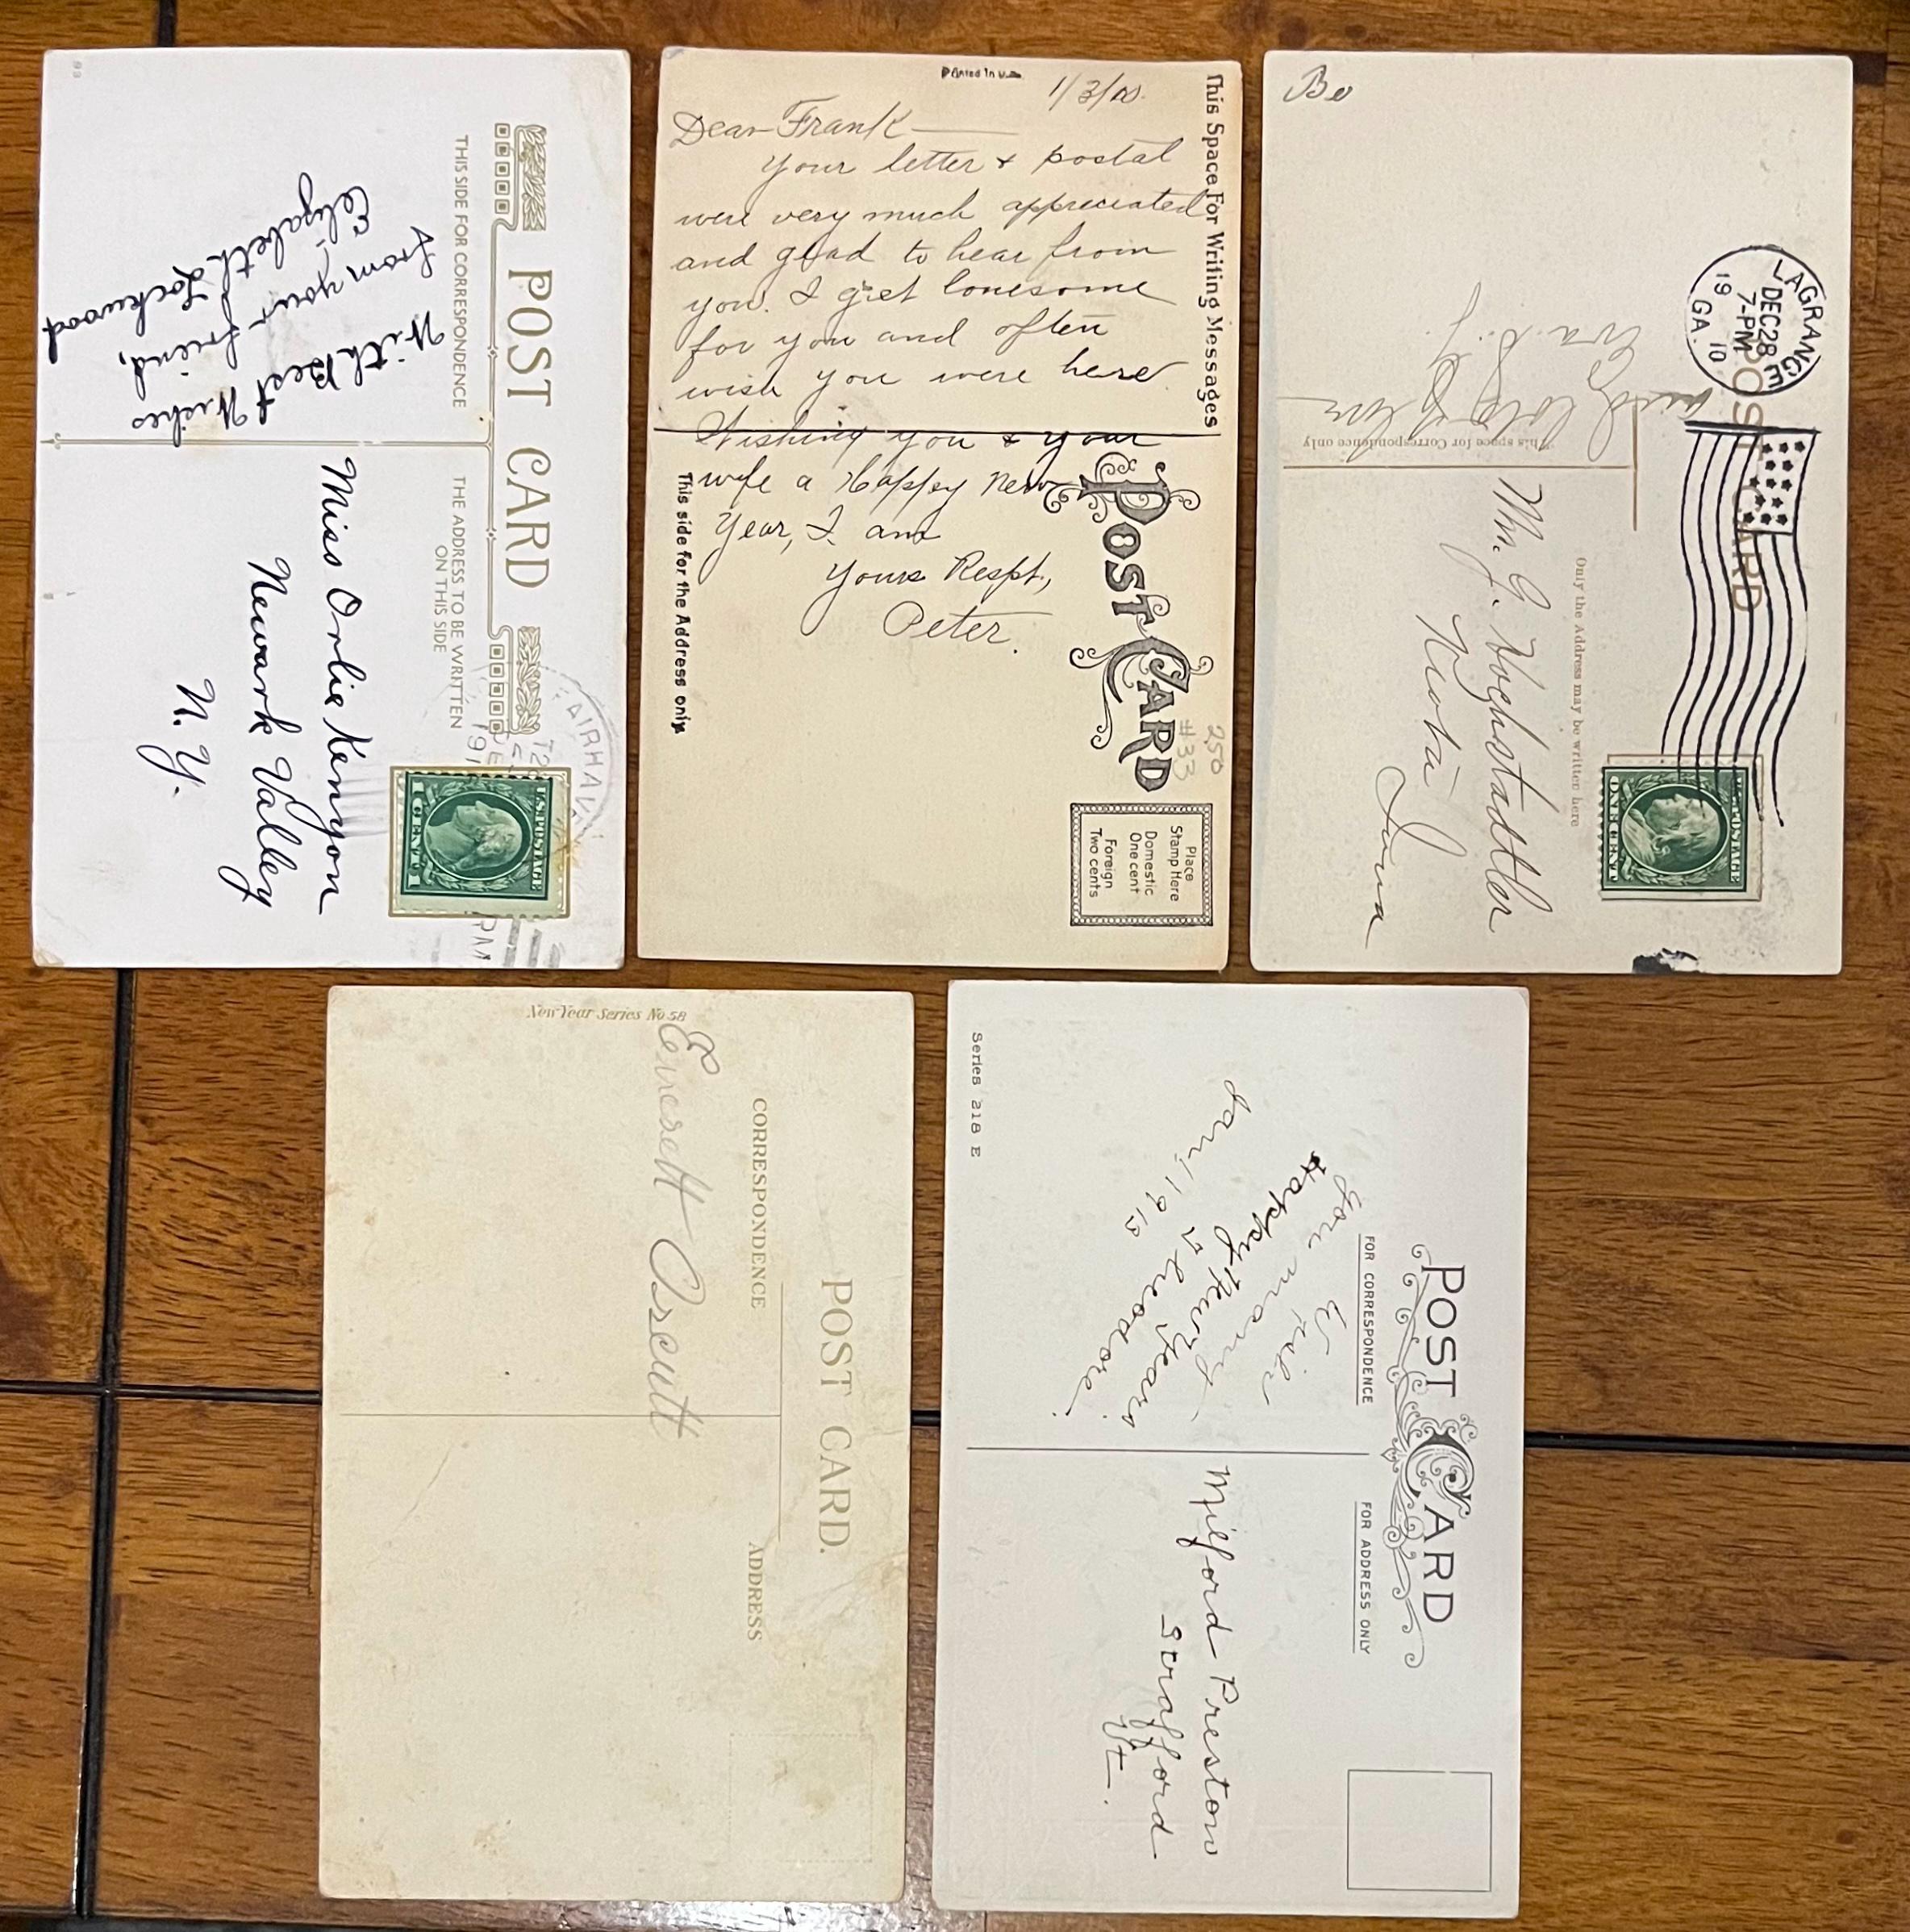 POST CARD
THIS SIDE FOR CORRESPONDENCE
THE ADDRESS TO BE WRITTEN
ON THIS SIDE
With Best Wishes
from your friend,
Elizabeth Lockwood
Miss Orlie Kenyon
Newark Valley
N. Y.
FAIRHAVEN
191
PM
U.S. POSTAGE
1 CENT 1
Printed in U.S.A.
This Space For Writing Messages
1/3/10.
Dear Frank
Your letter & postal
were very much appreciated
and glad to hear from
you. I get lonesome
for you and often
wish you were here
Wishing you & your
wife a Happy New
Year, I am
Yours Respt.,
Peter.
POST CARD
This side for the Address only
250
#33
Place
Stamp Here
Domestic
One cent
Foreign
Two cents
LAGRANGE
DEC 28
7-PM
19 10
GA.
POST CARD
This space for Correspondence only
Only the Address may be written here
Mr. J. Hochstadtler
Iowa
U.S. POSTAGE
ONE CENT
New Year Series No 58
POST CARD.
CORRESPONDENCE
ADDRESS
Everett
Series 218 E
POST CARD
FOR CORRESPONDENCE
FOR ADDRESS ONLY
I Wish
you many
Happy New Years
Theodore.
Jan, 1 1913
Milford Preston
Strafford
Vt.